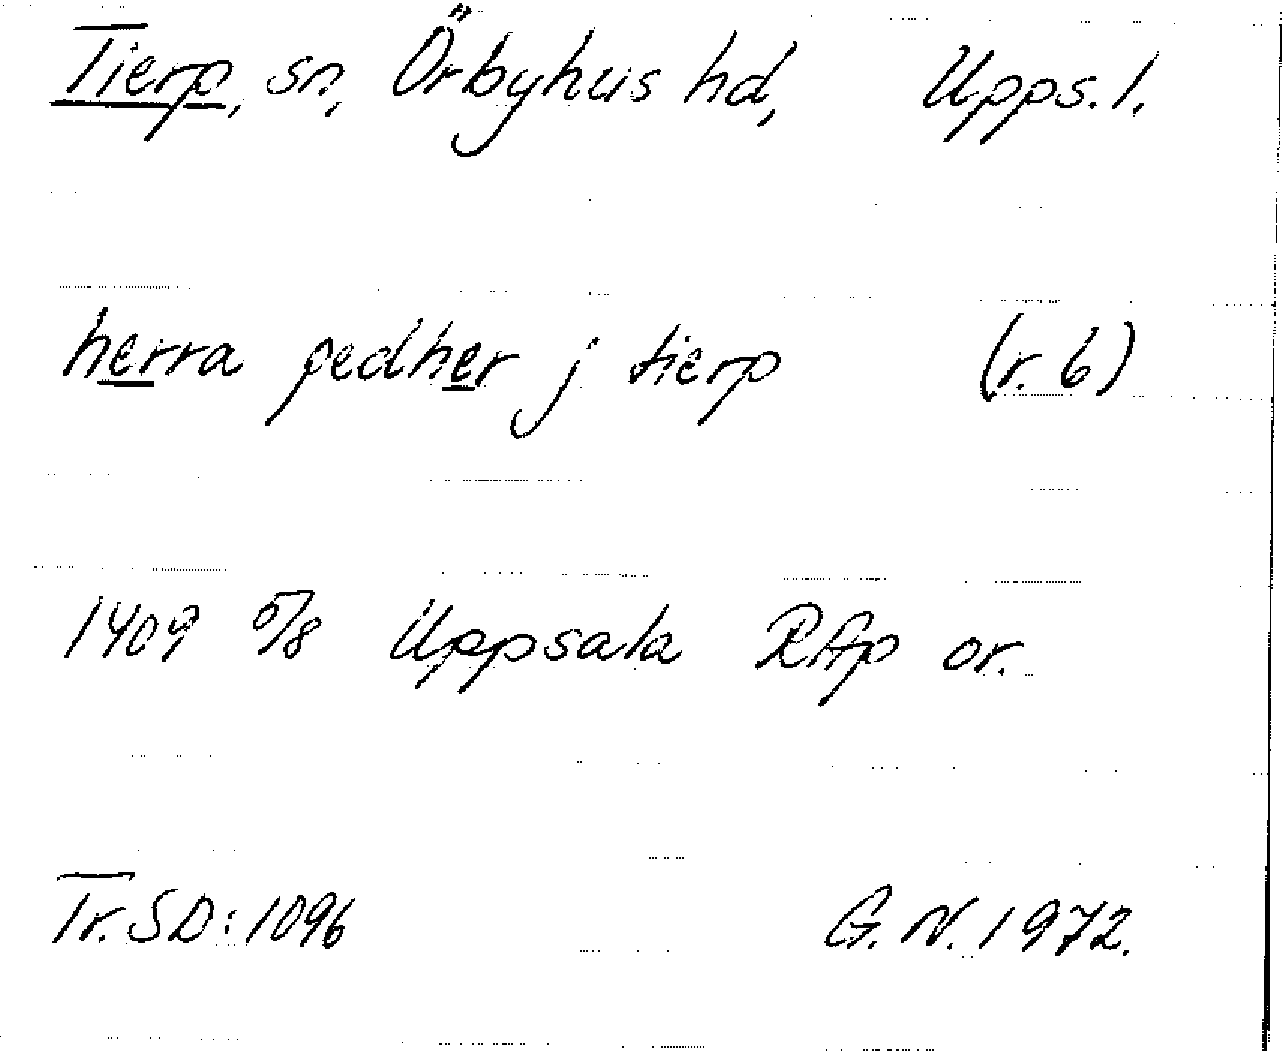 Tierp, sn, Örbyhus hd, Upps. l.
herra pedher j tierp (r. 6)
1409 5/8 Uppsala RAp or.
Tr. SD: 1096 G. N. 1972.